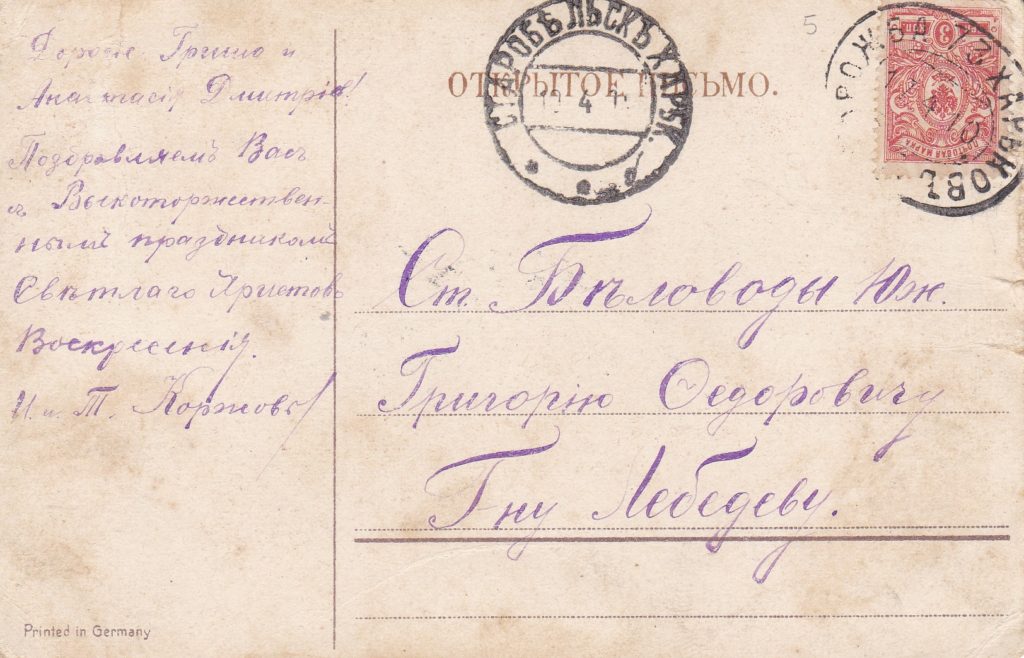 Дорогіе Гриша и
Анастасія Дмитріе!
Поздровляемъ Васъ
съ Высоторжествен-
нымъ праздникомъ
Свѣтлаго Христова
Воскресенія.
И. и Т. Коржовы
Printed in Germany
ОТКРЫТОЕ ПИСЬМО.
СТАРОБѢЛЬСКЪ ХАРЬК.
4
5
3 КОП
ПОЧТОВАЯ МАРКА
ХАРЬКОВЪ
Ст. Бѣловоды Юж.
Григорію Ѳедоровичу
Гну Лебедеву.